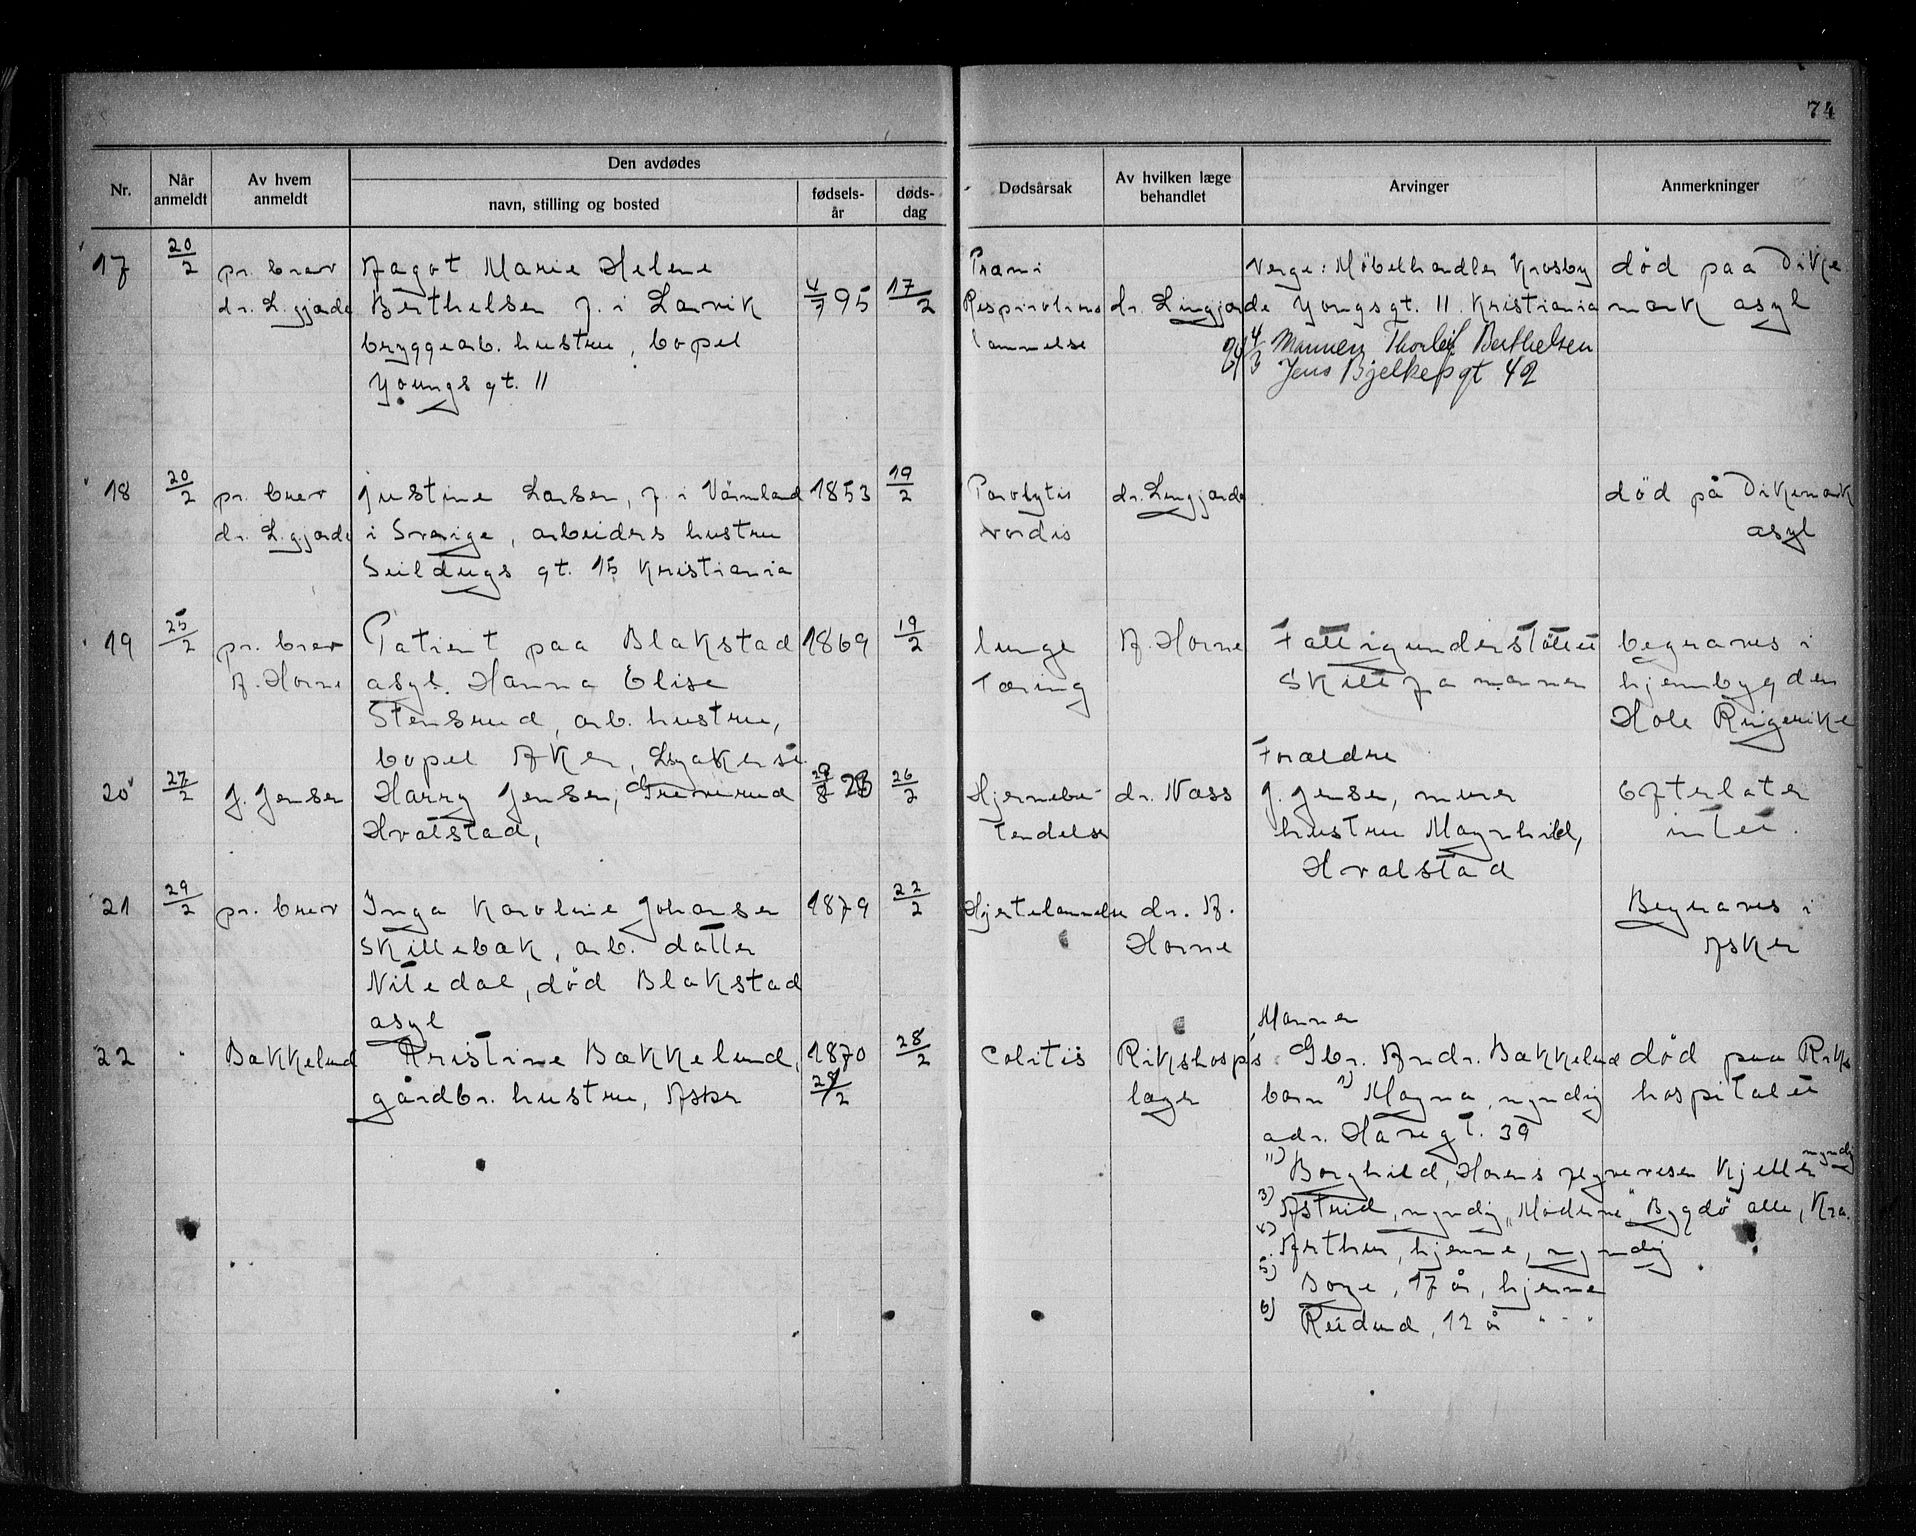 74
Nr.
Når anmeldt
Av hvem anmeldt
Den avdødes
navn, stilling og bosted
fødsels-år
døds-dag
Dødsårsak
Av hvilken læge behandlet
Arvinger
Anmerkninger
17
20/2
pr. brev
dr. L.gjærde
Aagot Marie Helene
Berthelsen f. i Larvik
bryggearb. hustru, bopel
Youngs gt. 11
4/7 95
17/2
Respirations
lammelse
dr. Lingjærde
Verge: Møbelhandler Krosby
Youngsgt. 11. Kristiania
4/3 Mannen Thorleif Berthelsen
Jens Bjelkes gt 42
død paa Dike
mark asyl
18
20/2
pr. brev
dr. L.gjærde
Justine Larsen, f. i Värmland
i Sverige, arbeiders hustru
Seildugs gt. 15 Kristiania
1853
19/2
dr. Lingjærde
død på Dikemark
asyl
19
25/2
pr. brev
A. Horne
Patient paa Blakstad
asyl. Hanna Elise
Stensrud, arb. hustru,
bopel Aker, Lysakersi
1869
19/2
lunge
Tæring
A. Horne
Fattigunderstøttet
Skilt fra mannen
begraves i
hjembygden
Hole Ringerike
20
27/2
J. Jensen
Harry Jensen,
Hvalstad,
23
26/2
Hjernebe-
tendelse
dr. Næss
Forældre
J. Jensen, murer
hustru Magnhild,
Hvalstad
Efterlater
intet.
21
29/2
pr. brev
Inga Karoline Johansen
Skillebæk, arb. datter
Nitedal, død Blakstad
asyl
1879
22/2
Hjertelammelse
dr. A.
Horne
Begraves i
Asker
22
Bakkelund
Kristine Bakkelund,
gårdbr. hustru, Asker
1870
28/2
28/2
Colitis
Rikshosp's
læger
Mannen
Gbr. Andr. Bakkelund
barn 1) Magna, myndig
adr. Haregt. 39
11) Borghild, Hærens flyvevesen Kjeller myndig
3) Astrid, myndig, "Moderne" Bygdø alle, Kra.
4) Arthur, hjemme, myndig
5) Borge, 17 år, hjemme
6) Reidund, 12 å " - "
død paa Riks
hospitalet